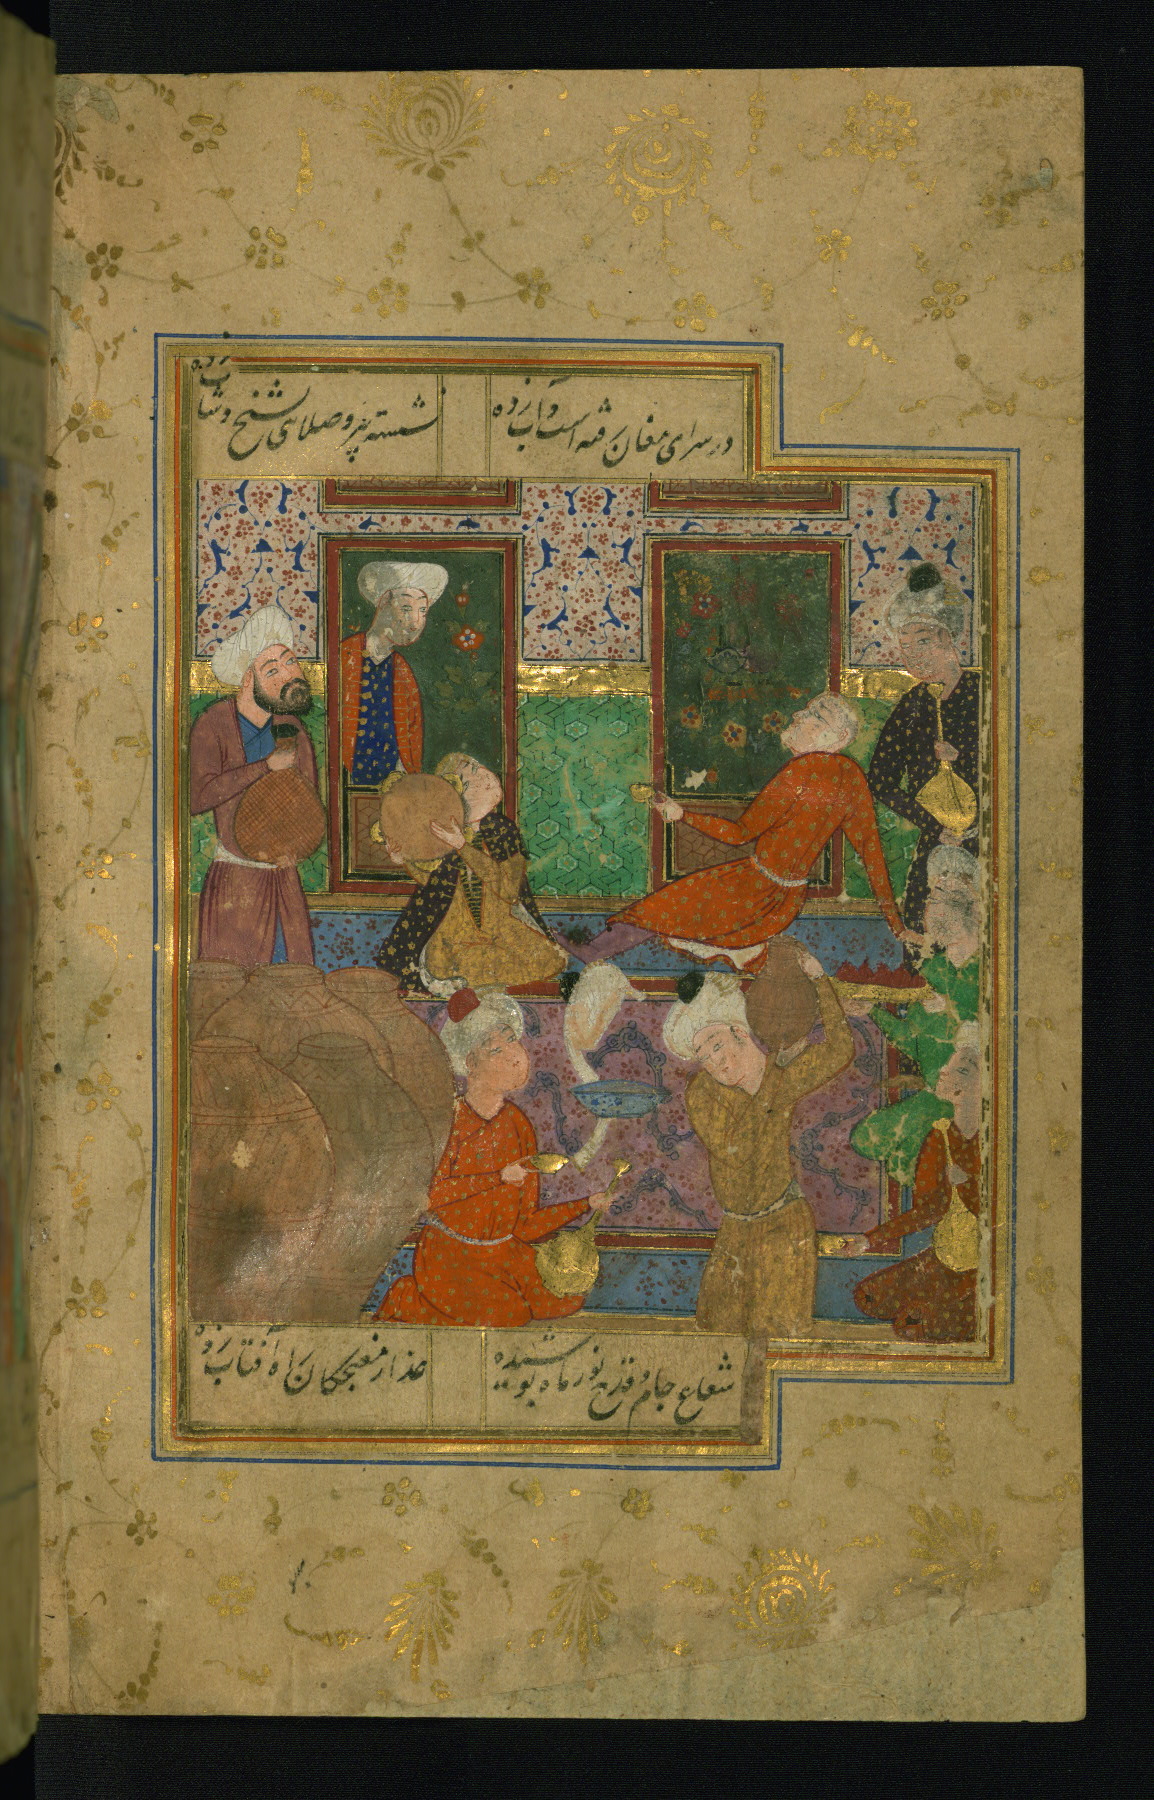 در سرای مغان رفته است و آب زده
نشسته پیر و صلائی بشیخ و شاب زده
شعاع جام و قدح نور ماه پوشیده
عذار مغبچگان راه آفتاب زده